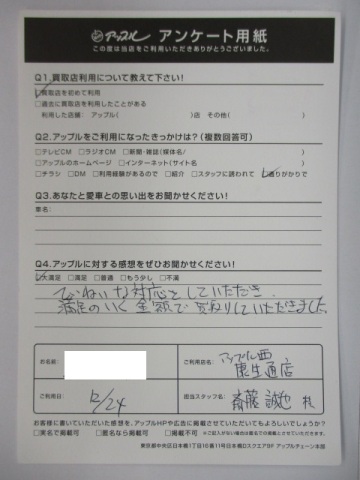 アップル アンケート用紙
この度は当店をご利用いただきありがとうございました。
Q1.買取店利用について教えて下さい!
☑買取店を初めて利用
□過去に買取店を利用したことがある
利用した店舗: アップル( )店 その他( )
Q2.アップルをご利用になったきっかけは?(複数回答可)
□テレビCM □ラジオCM □新聞・雑誌(媒体名/ )
□アップルのホームページ □インターネット(サイト名 )
□チラシ □DM □利用経験があるので □紹介 □スタッフに誘われて ☑通りがかりで
Q3.あなたと愛車との思い出をお聞かせください!
車名:
Q4.アップルに対する感想をぜひお聞かせください!
☑大満足 □満足 □普通 □もう少し □不満
ていねいな対応をしていただき、
満足のいく金額で買取りしていただきました
お名前:
ご利用店名: アップル西
桑生通店
ご利用日: 12/24
担当スタッフ名: 斎藤誠也 様
お客様に書いていただいた感想を、アップルHPや広告に掲載させていただいてもよろしいでしょうか?
□実名で掲載可 □匿名なら掲載可 □掲載不可
東京都中央区日本橋1丁目16番11号日本橋Dスクエア5F アップルチェーン本部